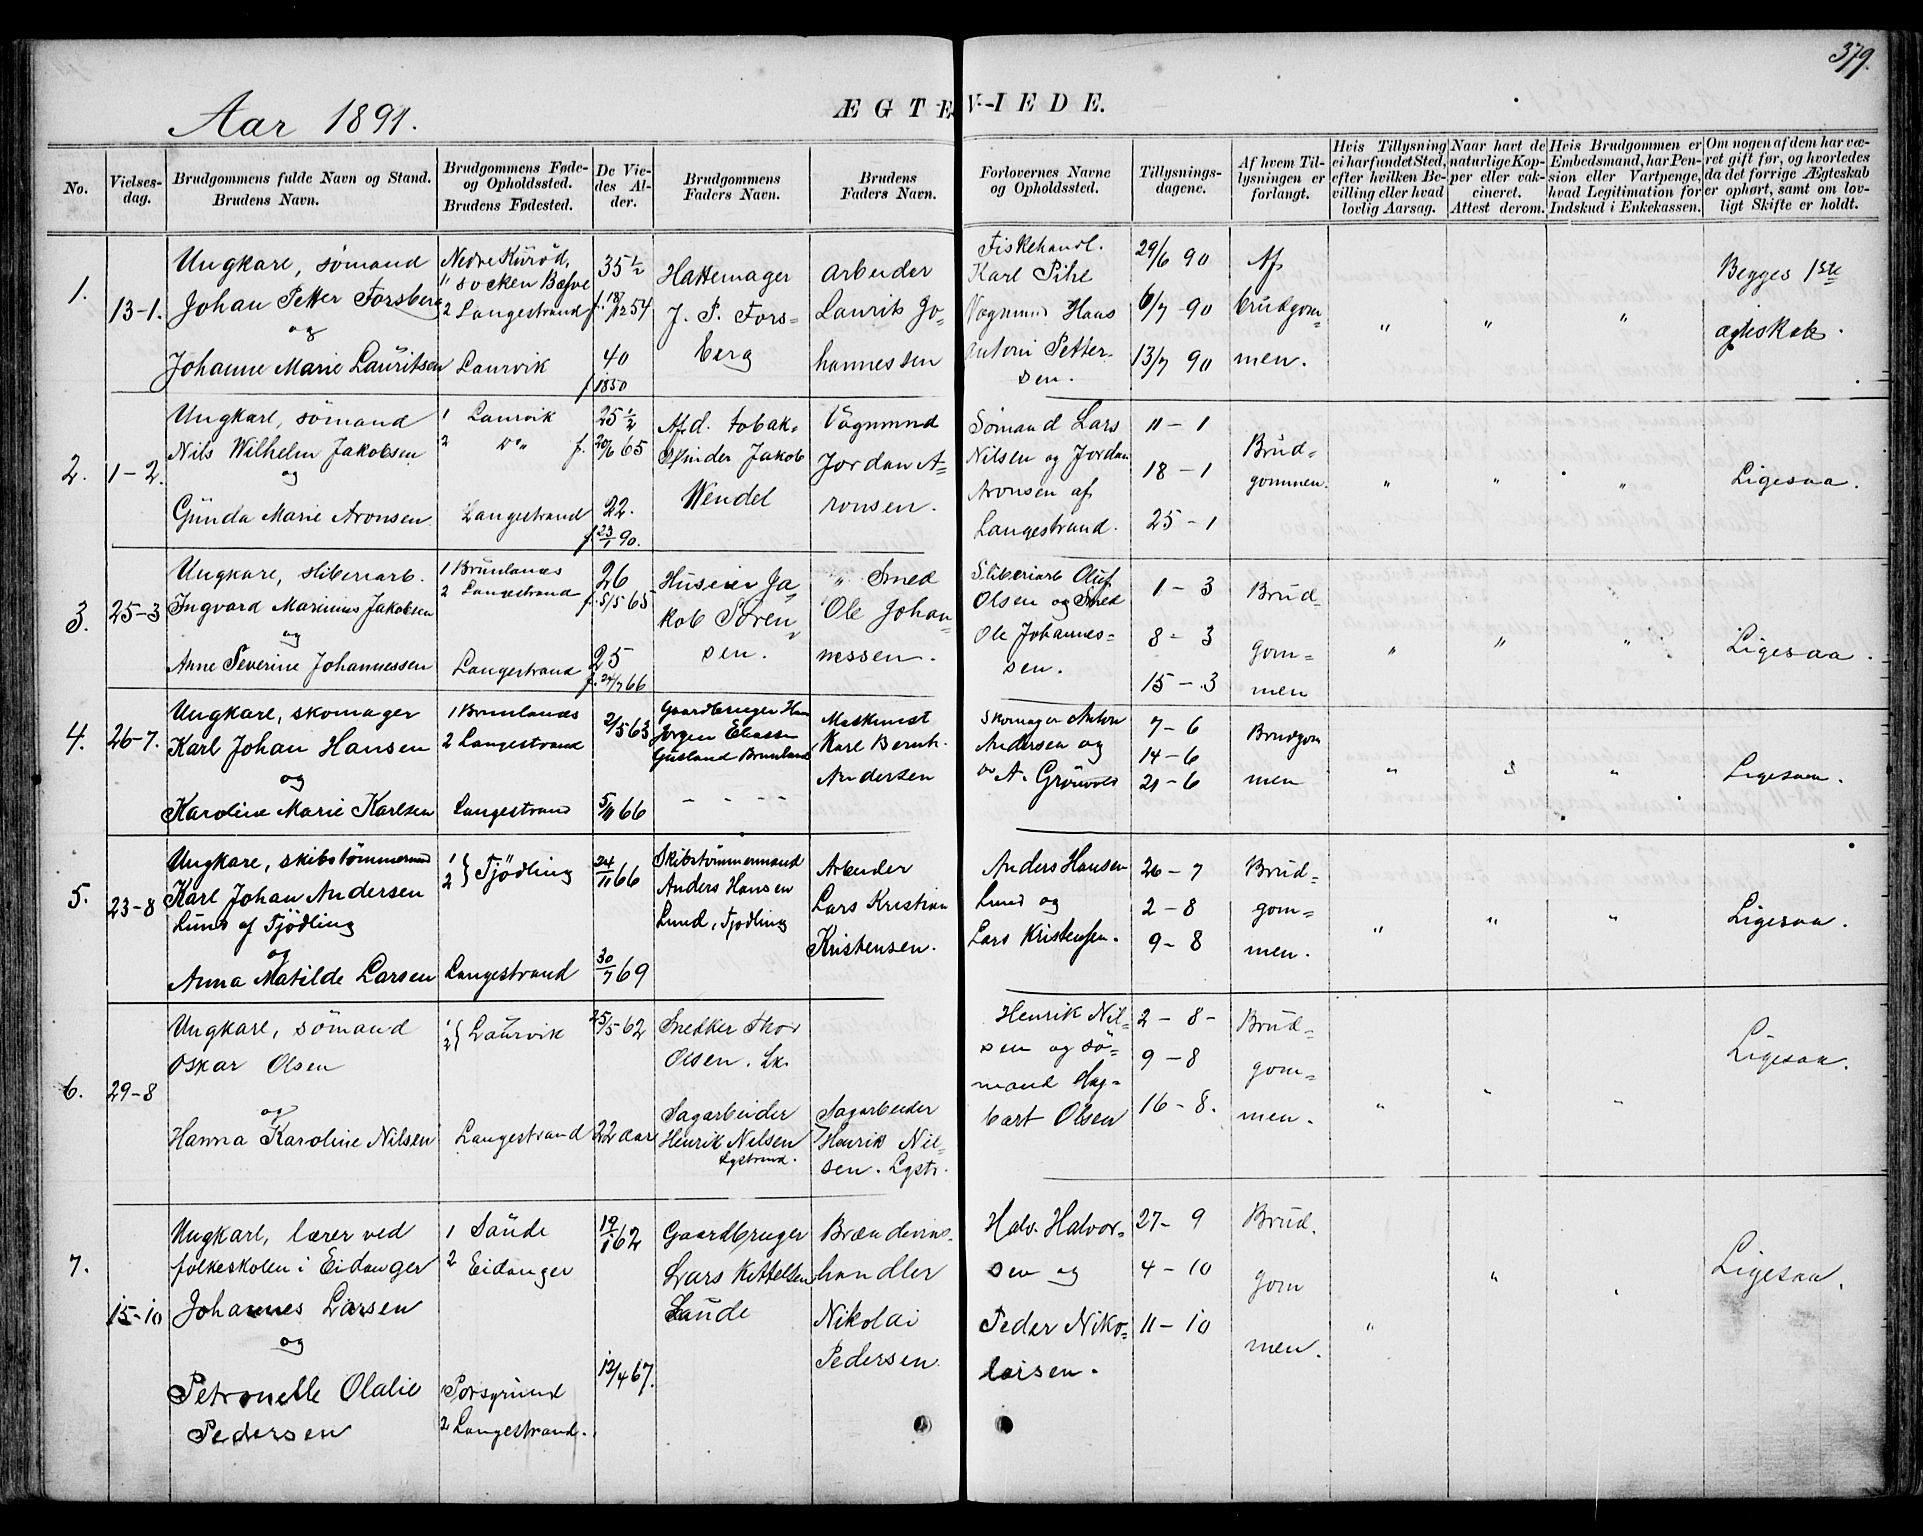 379.
Aar 1891.
ÆGTEVIEDE.
No.
Vielses-
dag.
Brudgommens fulde Navn og Stand.
Brudens Navn.
Brudgommens Føde-
og Opholdssted.
Brudens Fødested.
De Vie-
des Al-
der.
Brudgommens
Faders Navn.
Brudens
Faders Navn.
Forlovernes Navne
og Opholdssted.
Tillysnings-
dagene.
Af hvem Til-
lysningen er
forlangt.
Hvis Tillysning
ei har fundet Sted,
efter hvilken Be-
villing eller hvad
lovlig Aarsag.
Naar havt de
naturlige Kop-
per eller vak-
cineret.
Attest derom.
Hvis Brudgommen er
Embedsmand, har Pen-
sion eller Vartpenge,
hvad Legitimation for
Indskud i Enkekassen.
Om nogen af dem har væ-
ret gift før, og hvorledes
da det forrige Ægteskab
er ophørt, samt om lov-
ligt Skifte er holdt.
1.
13-1.
Ungkarl, sømand
Johan Petter Forsberg
og
Johanne Marie Lauritsen
Nedre Kürød,
1 socken Bäfve
2 Langestrand
Laurvik
35 1/2
f. 18/12 54
40
f. 1850
Hattemager
J. P. Fors-
berg
Arbeider
Laurits Jo-
hannessen
Fiskehandl.
Karl Pihl
Vognmand Hans
Antoni Petter-
sen.
29/6 90
6/7 90
13/7 90
Af
brudgom-
men.
" " "
Begges 1ste
ægteskab.
2.
1-2.
Ungkarl, sømand
Nils Wilhelm Jakobsen
og
Gunda Marie Aronsen
1 Laurvik
2 Do f.
Langestrand
25 1/2
20/6 65
22.
f. 23/1 90.
Afd. tobak-
spinder Jakob
Wendel
Vognmand
Jordan A-
ronsen.
Sømand Lars
Nilsen og Jordan
Aronsen af
Langestrand.
11 - 1
18 - 1
25 - 1
Brud-
gommen.
" " "
Ligesaa.
3.
25-3
Ungkarl, sliberiarb.
Ingvard Marinius Jakobsen
og
Anne Severine Johannessen
1 Brunlanes
2 Langestrand
Langestrand
26
f. 5/5 65
25
f. 24/7 66
Huseier Ja-
kob Søren-
sen.
" Smed
Ole Johan-
nessen.
Sliberiarb Oluf
Olsen og Smed
Ole Johannes-
sen.
1 - 3
8 - 3
15 - 3
Brud-
gom-
men
" " "
Ligesaa.
4.
26-7.
Ungkarl, skomager
Karl Johan Hansen
og
Karoline Marie Karlsen
1 Brunlanes
2 Langestrand
Langestrand
2/5 63
5/11 66
Gaardbruger Hans
Jørgen Eliassen
Gusland Brunlanes
- - - -
Maskinist
Karl Bernh.
Andersen
Skomager Anton
Andersen og
Do A.
7 - 6
14 - 6
21 - 6
Brudgom
men
" " "
Ligesaa.
5.
23-8
Ungkarl, skibstømmermand
Karl Johan Andersen
Lund af Tjødling
og
Anna Matilde Larsen
1
2 } Tjødling
Langestrand
24/11 66
30/7 69
Skibstømmermand
Anders Hansen
Lund, Tjødling
Arbeider
Lars Kristian
Kristensen.
Anders Hansen
Lund og
Lars Kristensen.
26 - 7
2 - 8
9 - 8
Brud-
gom-
men.
" " "
Ligesaa.
6.
29-8
Ungkarl, sømand
Oskar Olsen
og
Hanna Karoline Nilsen
1
2 } Laurvik
Langestrand
25/5 62
22 aar
Snedker Thor
Olsen. Lk.
Sagarbeider
Henrik Nilsen
Lgstrand.
Sagarbeider
Henrik Nil-
sen. Lgstr.
Henrik Nil-
sen og sø-
mand Hag-
bart Olsen
2 - 8 -
9 - 8
16 - 8.
Brud-
gom-
men.
" " "
Ligesaa.
7.
15-10
Ungkarl, lærer ved
folkeskolen i Eidanger
Johannes Larsen
og
Petronelle Olalie
Pedersen
1 Saude
2 Eidanger
1 Porsgrund
2 Langestrand.
19/1 62
12/4 67.
Gaardbruger
Lars Kittelsen
Saude
Brændevins-
handler
Nikolai
Pedersen.
Halv. Halvor-
sen og
Peder Niko-
laisen.
27 - 9
4 - 10
11 - 10
Brud.
gom
men.
" " "
Ligesaa.